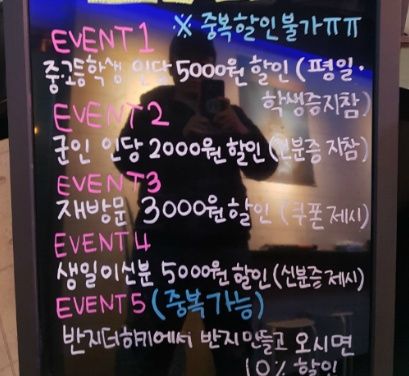 EVENT 1 ※ 중복할인불가ㅠㅠ
중고등학생 인당 5000원 할인 (평일·
학생증지참)
EVENT 2
군인 인당 2000원 할인 (신분증 지참)
EVENT 3
재방문 3000원 할인 (쿠폰 제시)
EVENT 4
생일이신분 5000원 할인 (신분증 제시)
EVENT 5 (중복 가능)
반지더하기에서 반지 만들고 오시면
10% 할인